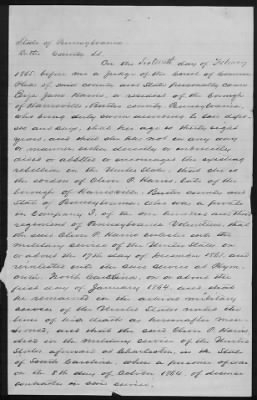 State of Pennsylvania
Butler County SS.
On the Sixteenth day of February
1865. before me a Judge of the Court of Common
Pleas of said county and State personally came
Eliza Jane Harris, a resident of the borough
of Harrisville Butler county, Pennsylvania,
who being duly sworn according to law deposes
and says, that her age is thirty eight
years, and that she has not in any way
or manner either directly or indirectly
aided or abetted or encouraged the existing
rebellion in the United States, that she is
the widow of Oliver P. Harris, late of the
borough of Harrisville, Butler county and
State of Pennsylvania, who was a private
in Company I, of the one hundred and third
regiment of Pennsylvania Volunteers, that
the said Oliver P. Harris enlisted into the
military service of the United States on
or about the 17th day of December 1861. and
reenlisted into the said service at Plym-
outh North Carolina, on or about the
first day of January 1864, and that
he remained in the actual military
service of the United States until the
time of his death as hereinafter men-
tioned, and that the said Oliver P. Harris
died in the military service of the United
States aforesaid at Charleston, in the State
of South Carolina when a prisoner of war
on the 8th day of October 1864, of disease
contracted in said service,